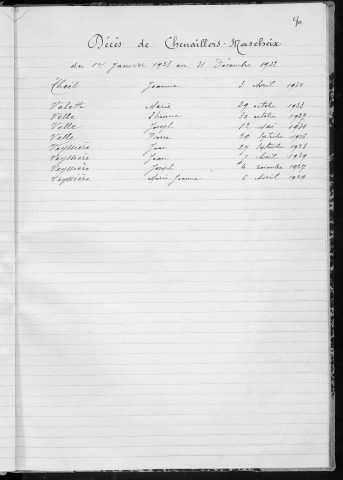 Décès de Chenaillers-Mascheix
du 1er Janvier 1923 au 31 Décembre 1932
Jeanne 3 Avril 1930
Valette Marie 29 octobre 1923
Velle 30 octobre 1927
Velle Joseph 12 Mai 1930
Velle Pierre 29 1926
Veyssière Jean 27 Septembre 1928
Veyssière Jean 7 Avril 1929
Veyssière Joseph 4 novembre 1927
Veyssière Marie Jeanne 6 Avril 1929